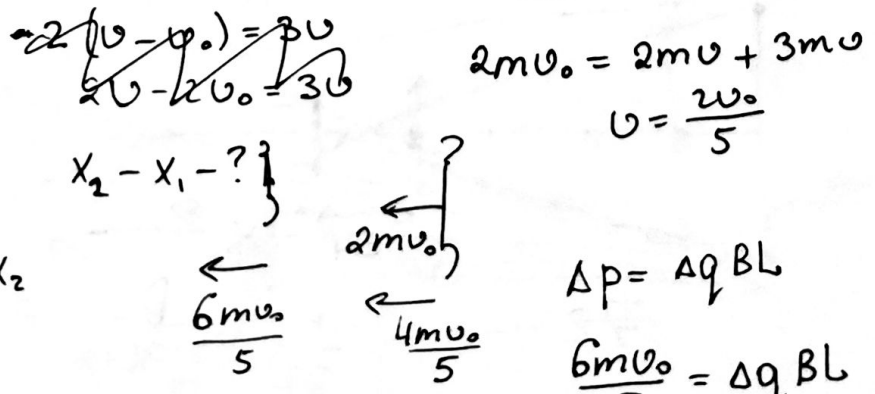 -2(υ - υ₀) = 3υ
2υ - 2υ₀ = 3υ
2mυ₀ = 2mυ + 3mυ
υ = 2υ₀/5
X₂ - X₁ - ?
2mυ₀
X₂
6mυ₀/5
4mυ₀/5
Δp = Δq BL
6mυ₀ = Δq BL